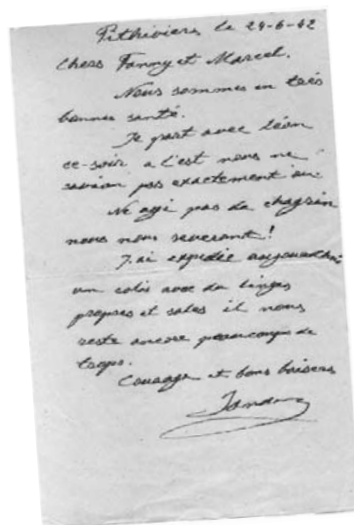 Pithiviers le 24-6-42
Chers Fanny et Marcel.
Nous sommes en très
bonnes santé.
Je part avec Léon
ce-soir a l'est nous ne
savion pas exactement ou.
Ne pas de chagrin
nous nous reveront!
J.ai expedié aujourdhui
un colis avec du linges
propres et sales il nous
reste ancore de
trops.
Courage et bons baisers